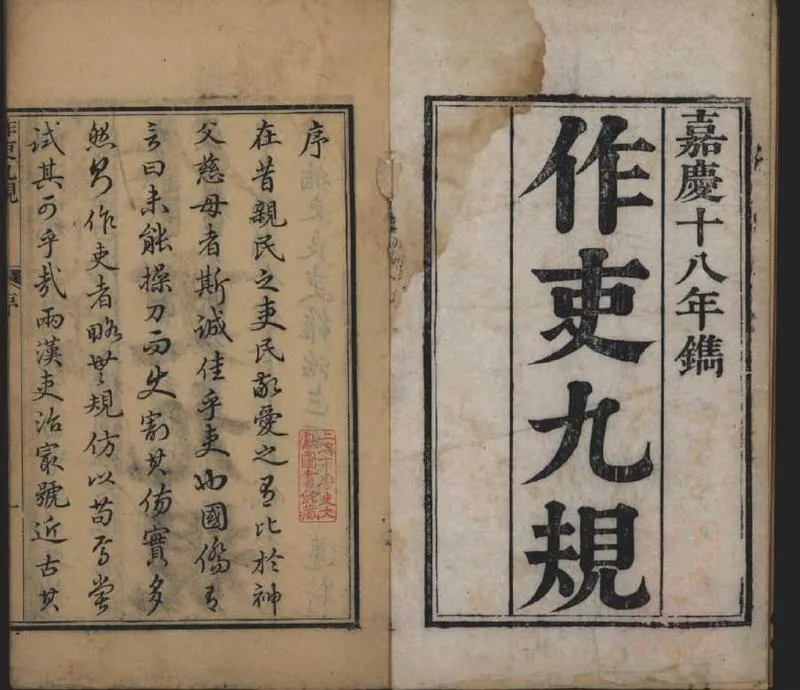 嘉慶十八年鐫
作吏九規
序
在昔親民之吏民敬愛之有比於神
父慈母者斯誠佳乎吏也國僑有
言曰未能操刀而使割其傷實多
然則作吏者略無規仿以苟焉嘗
試其可乎哉兩漢吏治最號近古其
作吏九規
序
一